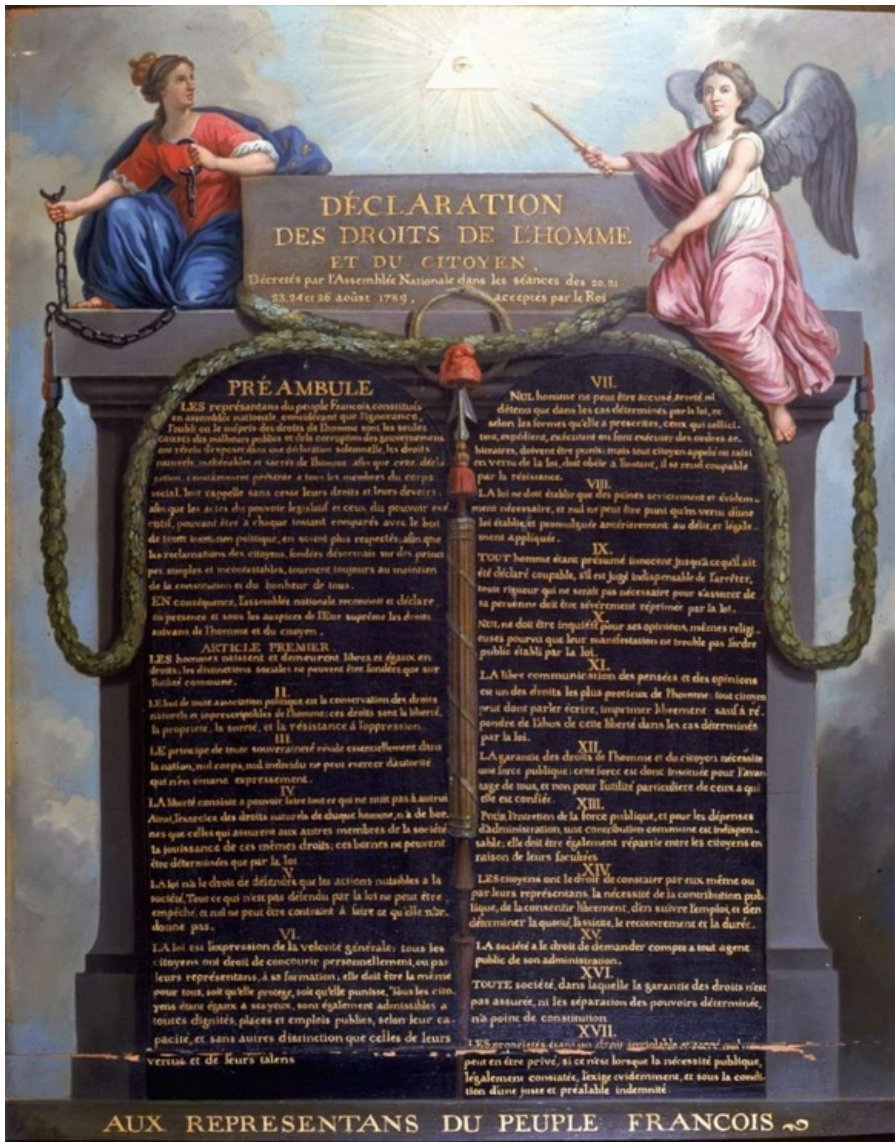 DÉCLARATION
DES DROITS DE L'HOMME
ET DU CITOYEN,
Décretés par l'Assemblée Nationale dans les séances des 20.21
23.24 et 26 août 1789, acceptés par le Roi
PRÉAMBULE
LES représentans du peuple François, constitués
en assemblée nationale, considérant que l'ignorance,
l'oubli ou le mépris des droits de l'homme sont les seules
causes des malheurs publics et de la corruption des gouvernemens
ont résolu d'exposer dans une déclaration solemnelle, les droits
naturels, inaliénables et sacrés de l'homme, afin que cette décla
ration, constamment présente à tous les membres du corps
social, leur rappelle sans cesse leurs droits et leurs devoirs,
afin que les actes du pouvoir législatif et ceux du pouvoir exé
cutif, pouvant être à chaque instant comparés avec le but
de toute institution politique, en soient plus respectés; afin que
les reclamations des citoyens, fondées désormais sur des princi
pes simples et incontestables, tournent toujours au maintien
de la constitution et du bonheur de tous.
EN conséquence, l'assemblée nationale reconnoit et déclare,
en presence et sous les auspices de l'Etre suprême les droits
suivans de l'homme et du citoyen.
ARTICLE PREMIER.
LES hommes naissent et demeurent libres et égaux en
droits; les distinctions sociales ne peuvent être fondées que sur
l'utilité commune.
II.
LE but de toute association politique est la conservation des droits
naturels et inprescriptibles de l'homme; ces droits sont la liberté,
la proprieté, la sureté, et la résistance à l'oppression.
III.
LE principe de toute souveraineté réside essentiellement dans
la nation, nul corps, nul individu ne peut exercer d'autorité
qui n'en émane expressement.
IV
LA liberté consiste a pouvoir faire tout ce qui ne nuit pas à autrui
Ainsi, l'exercice des droits naturels de chaque homme, n'a de bor-
nes que celles qui assurent aux autres membres de la société
la jouissance de ces mêmes droits; ces bornes ne peuvent
être déterminées que par la loi
V.
LA loi n'a le droit de défendre que les actions nuisibles à la
société. Tout ce qui n'est pas défendu par la loi ne peut être
empêché, et nul ne peut être contraint à faire ce qu'elle n'or-
donne pas.
VI.
LA loi est l'expression de la volonté générale; tous les
citoyens ont droit de concourir personnellement, ou par
leurs représentans, à sa formation; elle doit être la même
pour tous, soit qu'elle protege, soit qu'elle punisse, Tous les cito
yens étant égaux à ses yeux, sont également admissibles à
toutes dignités, places et emplois publics, selon leur ca
pacité, et sans autres distinction que celles de leurs
vertus et de leurs talens
VII.
NUL homme ne peut être accusé, arreté, ni
détenu que dans les cas déterminés par la loi, et
selon les formes qu'elle a prescrites, ceux qui sollici-
tent, expédient, exécutent ou font exécuter des ordres ar-
bitraires, doivent être punis; mais tout citoyen appelé ou saisi
en vertu de la loi, doit obéir à l'instant, il se rend coupable
par la résistance.
VIII.
LA loi ne doit établir que des peines strictement et évidem-
ment nécessaire, et nul ne peut être puni qu'en vertu d'une
loi établie et promulguée antérierement au délit, et légale-
ment appliquée.
IX.
TOUT homme étant présumé innocent jusqu'à ce qu'il ait
été déclaré coupable, s'il est jugé indispensable de l'arrêter,
toute rigueur qui ne serait pas nécessaire pour s'assurer de
sa personne doit être sévèrement réprimée par la loi.
X.
NUL ne doit être inquiété pour ses opinions, mêmes religi-
euses pourvu que leur manifestation ne trouble pas l'ordre
public établi par la loi.
XI.
LA libre communication des pensées et des opinions
est un des droits les plus precieux de l'homme; tout citoyen
peut dont parler écrire, imprimer librement: sauf à ré-
pondre de l'abus de cette liberté dans les cas déterminés
par la loi.
XII.
LA garantie des droits de l'homme et du citoyen nécessite
une force publique; cette force est donc instituée pour l'avan
tage de tous, et non pour l'utilité particuliere de ceux a qui
elle est confiée.
XIII.
Pour l'entretien de la force publique, et pour les dépenses
d'administration, une contribution commune est indispen-
sable; elle doit être également répartie entre les citoyens en
raison de leurs facultés
XIV.
LES citoyens ont le droit de constater par eux même ou
par leurs représentans, la nécessité de la contribution pub-
lique, de la consentir librement, d'en suivre l'emploi, et d'en
déterminer la quotité, l'assiette, le recouvrement et la durée.
XV.
LA société a le droit de demander compte a tout agent
public de son administration.
XVI.
TOUTE société, dans laquelle la garantie des droits n'est
pas assurée, ni les séparation des pouvoirs déterminée,
n'a point de constitution
XVII.
LES proprietés étant un droit inviolable et sacré, nul ne
peut en être privé, si ce n'est lorsque la nécessité publique,
légalement constatée, l'exige evidemment, et sous la condi-
tion d'une juste et préalable indemnité.
AUX REPRESENTANS DU PEUPLE FRANCOIS